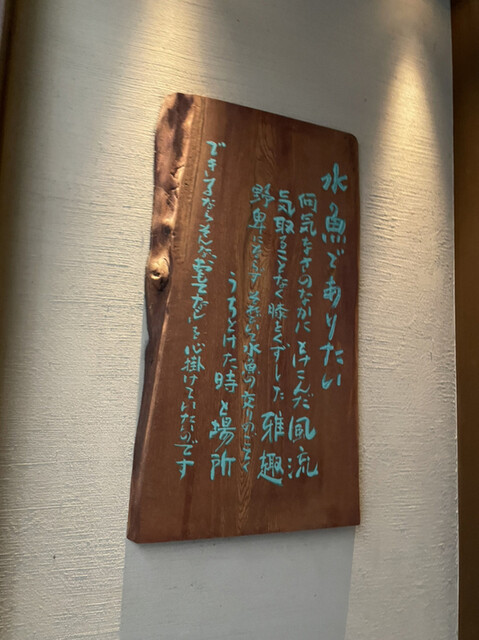 水魚でありたい
何気なさのなかに とけこんだ風流
気取ることなく膝をくずした 雅趣
野卑にならず それでいて水魚の交りのごとく
うちとけた 時と場所
できうるならそんなおもてなしを心掛けていたいのです